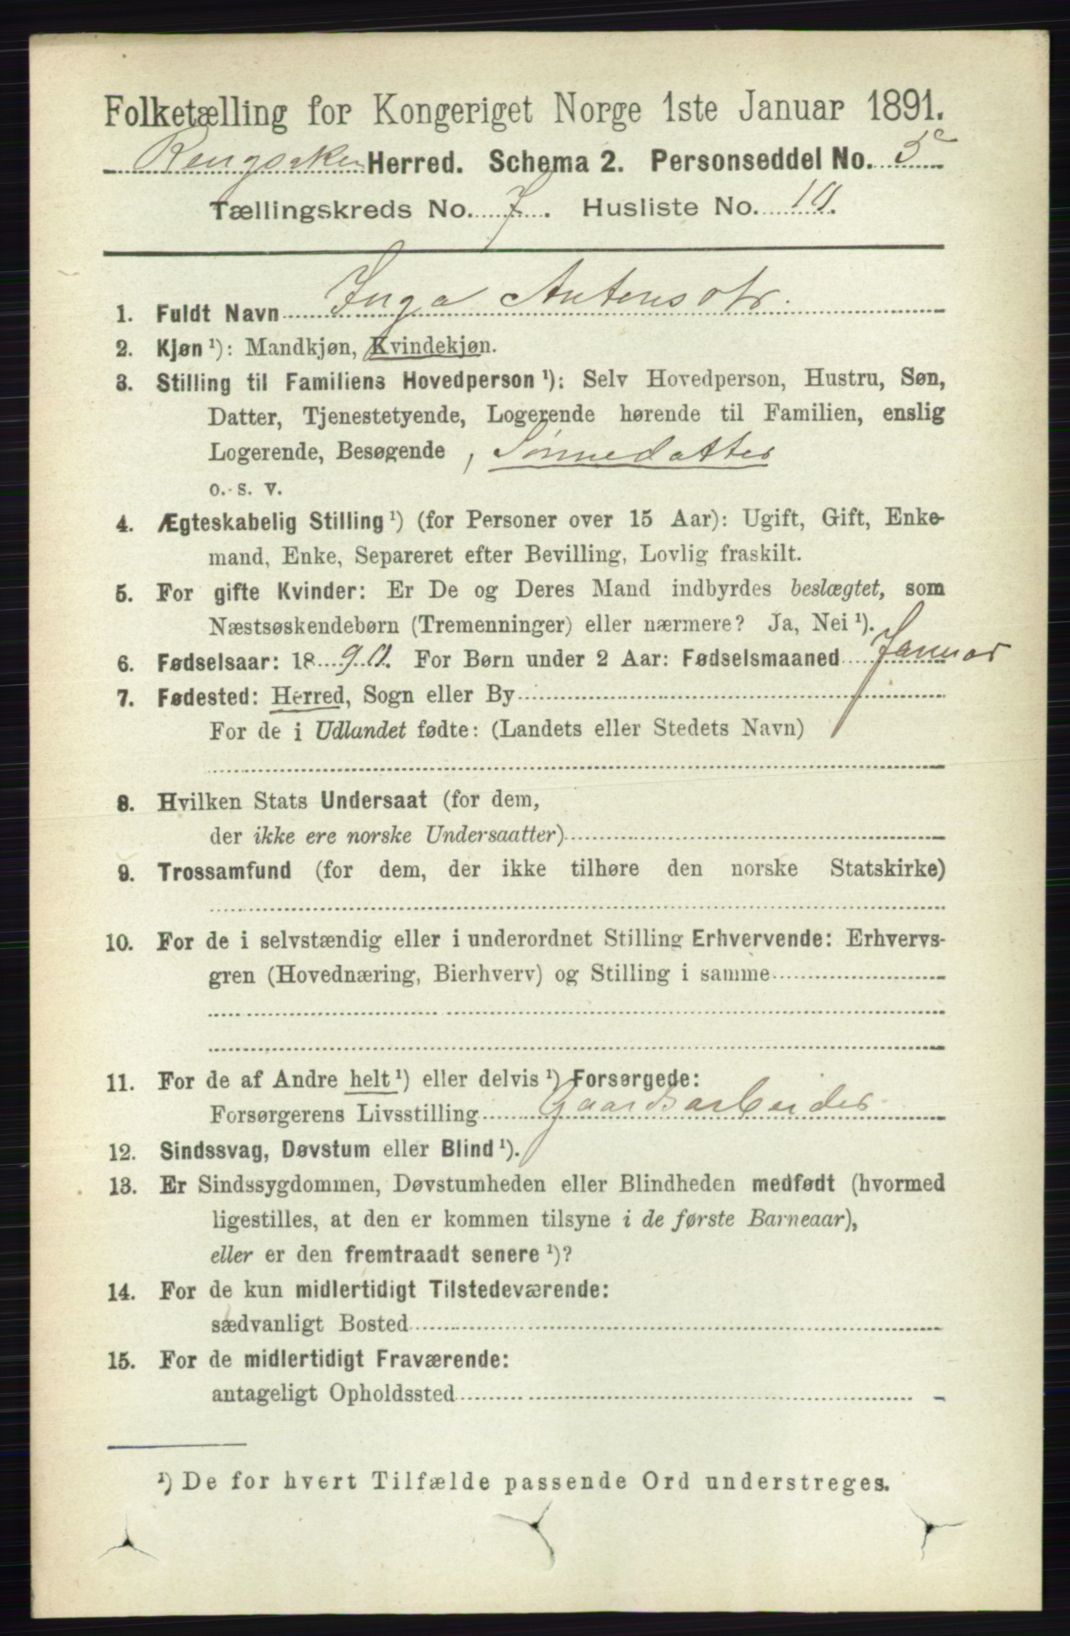 Folketælling for Kongeriget Norge 1ste Januar 1891.
Ringsaker Herred. Schema 2. Personseddel No. 5c
Tællingskreds No. 7. Husliste No. 10.
1. Fuldt Navn Inga Antonsdtr.
2. Kjøn ¹): Mandkjøn, Kvindekjøn.
3. Stilling til Familiens Hovedperson ¹): Selv Hovedperson, Hustru, Søn,
Datter, Tjenestetyende, Logerende hørende til Familien, enslig
Logerende, Besøgende, Sønnedatter
o. s. v.
4. Ægteskabelig Stilling ¹) (for Personer over 15 Aar): Ugift, Gift, Enke-
mand, Enke, Separeret efter Bevilling, Lovlig fraskilt.
5. For gifte Kvinder: Er De og Deres Mand indbyrdes beslægtet, som
Næstsøskendebørn (Tremenninger) eller nærmere? Ja, Nei ¹).
6. Fødselsaar: 1890. For Børn under 2 Aar: Fødselsmaaned Januar
7. Fødested: Herred, Sogn eller By
For de i Udlandet fødte: (Landets eller Stedets Navn)
8. Hvilken Stats Undersaat (for dem,
der ikke ere norske Undersaatter)
9. Trossamfund (for dem, der ikke tilhøre den norske Statskirke)
10. For de i selvstændig eller i underordnet Stilling Erhvervende: Erhvervs-
gren (Hovednæring, Bierhverv) og Stilling i samme
11. For de af Andre helt ¹) eller delvis ¹) Forsørgede:
Forsørgerens Livsstilling Gaardsarbeider
12. Sindssvag, Døvstum eller Blind ¹).
13. Er Sindssygdommen, Døvstumheden eller Blindheden medfødt (hvormed
ligestilles, at den er kommen tilsyne i de første Barneaar),
eller er den fremtraadt senere ¹)?
14. For de kun midlertidigt Tilstedeværende:
sædvanligt Bosted
15. For de midlertidigt Fraværende:
antageligt Opholdssted
¹) De for hvert Tilfælde passende Ord understreges.